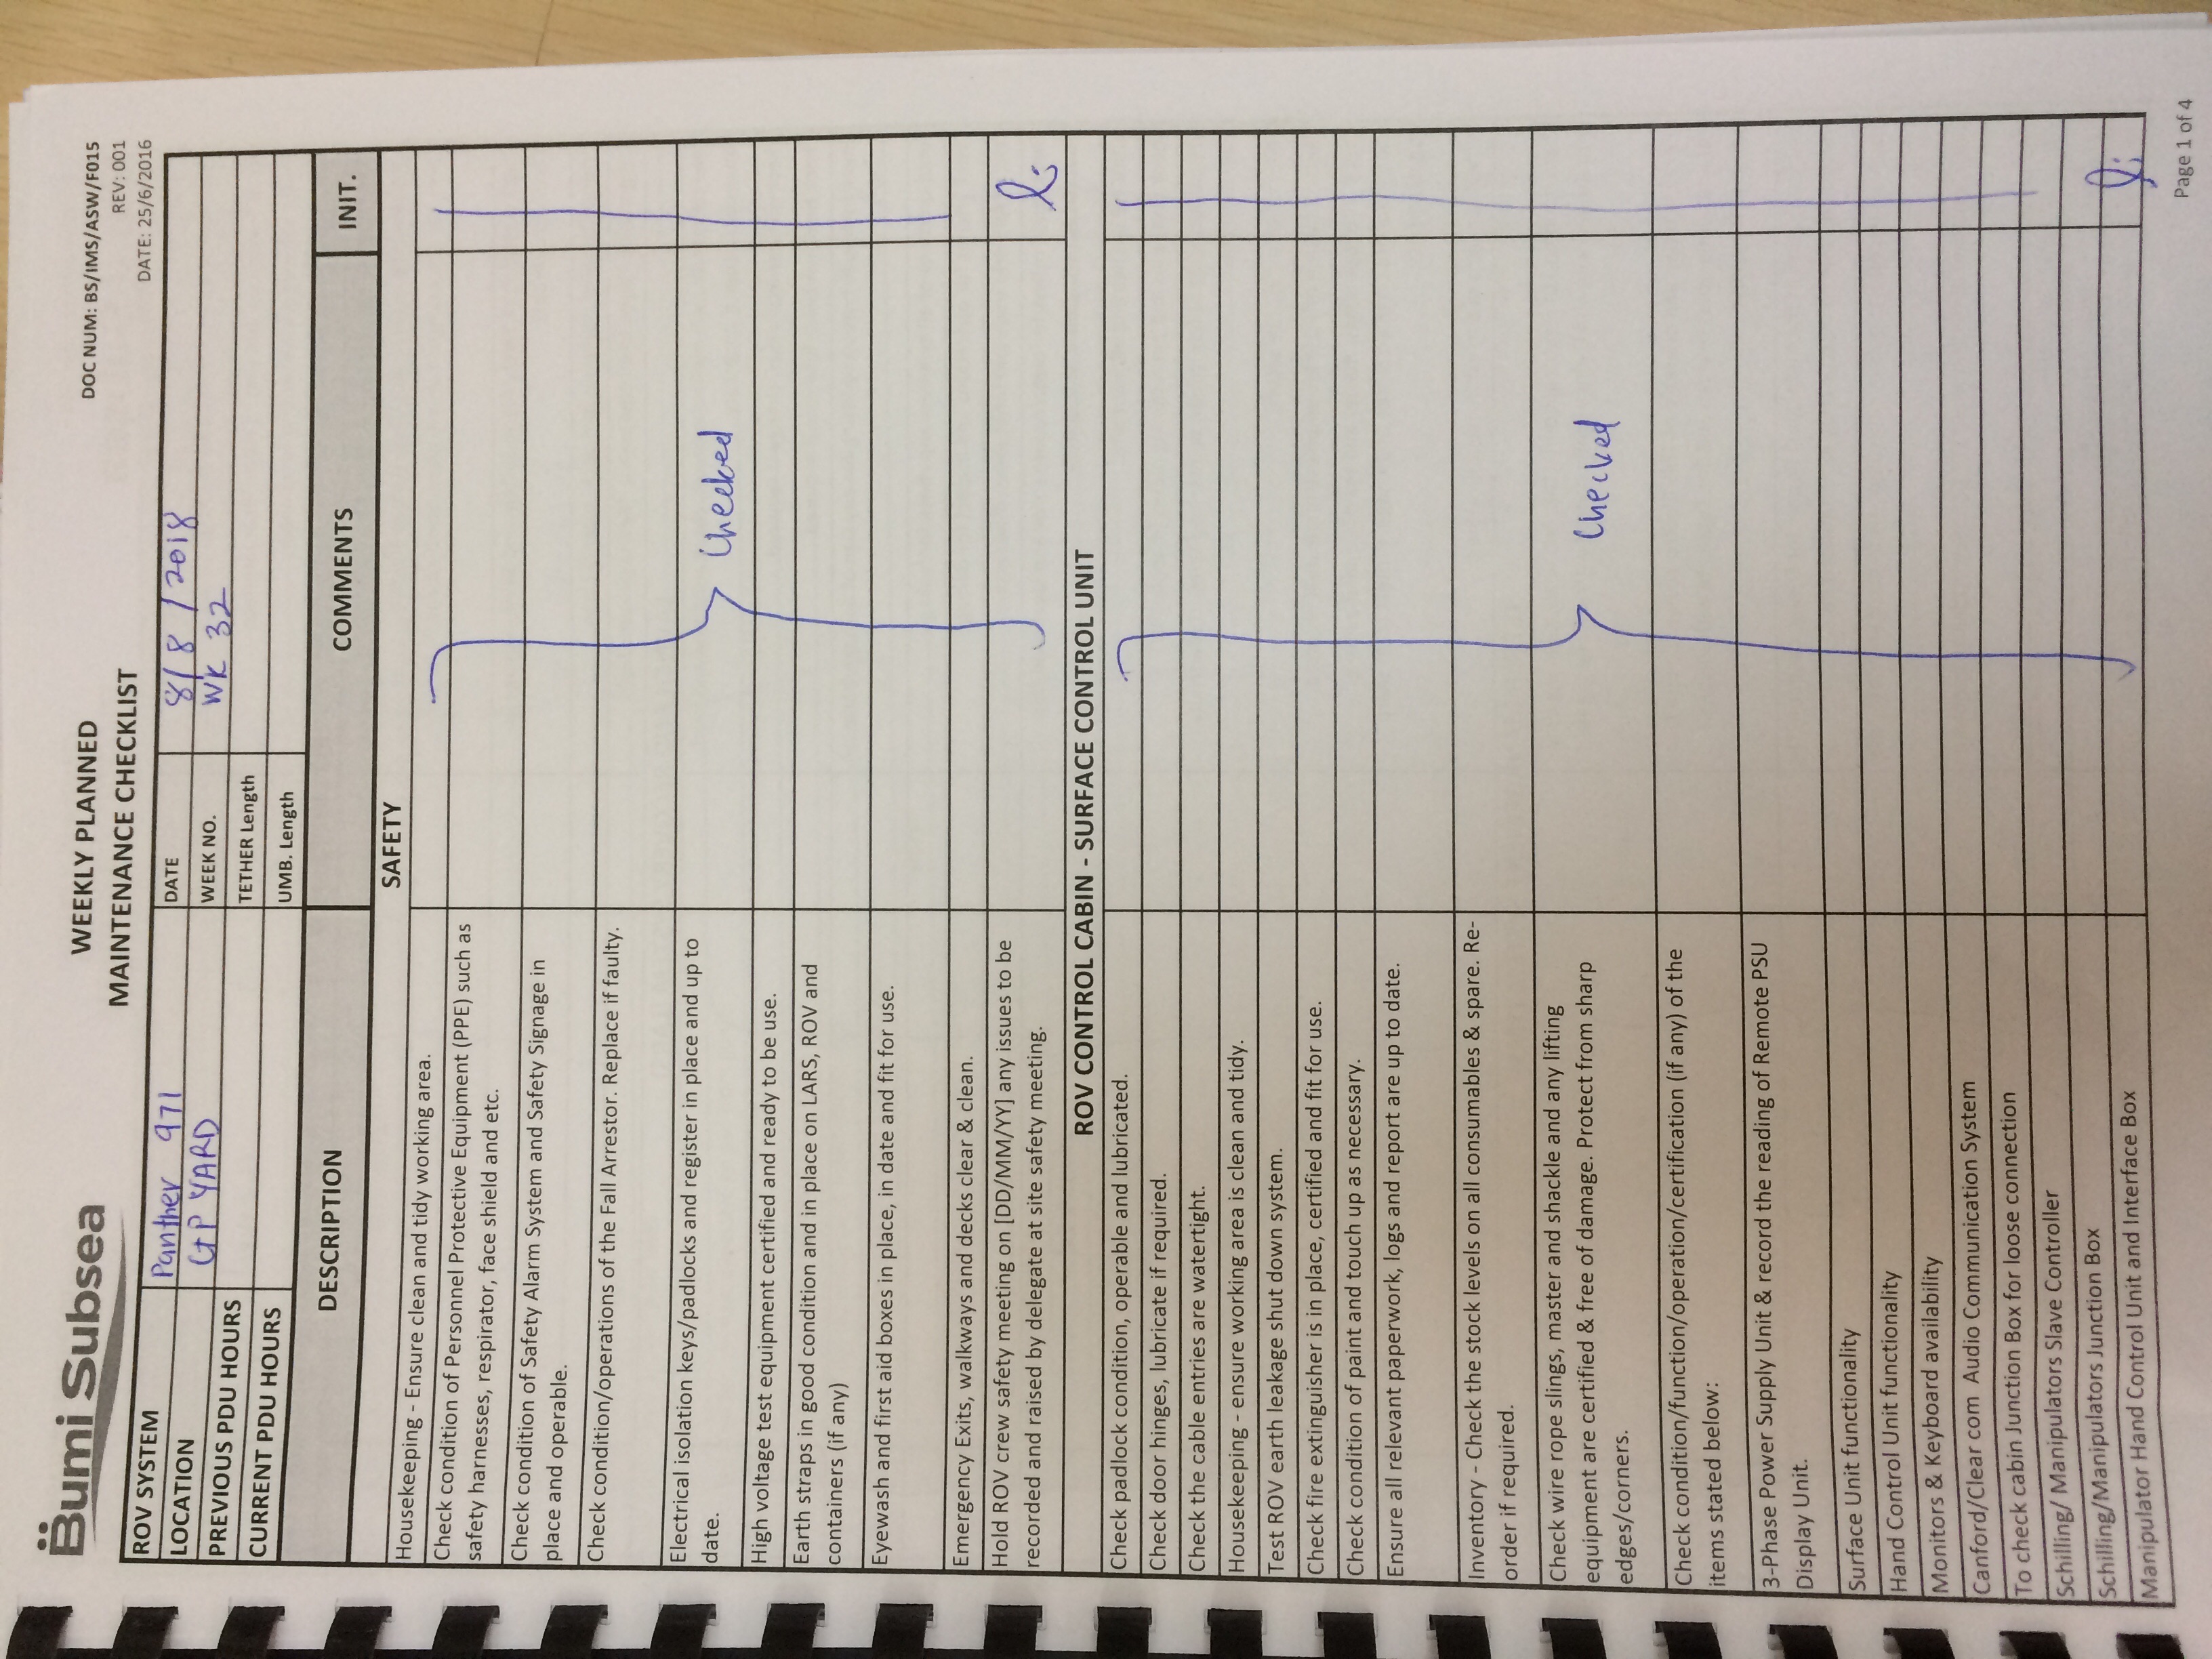 Bumi Subsea
WEEKLY PLANNED
MAINTENANCE CHECKLIST
DOC NUM: BS/IMS/ASW/F015
REV: 001
DATE: 25/6/2016
ROV SYSTEM Panther 971 DATE 8/8/2018
LOCATION GP YARD WEEK NO. WK 32
PREVIOUS PDU HOURS TETHER Length
CURRENT PDU HOURS UMB. Length
DESCRIPTION COMMENTS INIT.
SAFETY
Housekeeping - Ensure clean and tidy working area.
Check condition of Personnel Protective Equipment (PPE) such as
safety harnesses, respirator, face shield and etc.
Check condition of Safety Alarm System and Safety Signage in
place and operable.
Check condition/operations of the Fall Arrestor. Replace if faulty.
Electrical isolation keys/padlocks and register in place and up to
date.
Checked
High voltage test equipment certified and ready to be use.
Earth straps in good condition and in place on LARS, ROV and
containers (if any)
Eyewash and first aid boxes in place, in date and fit for use.
Emergency Exits, walkways and decks clear & clean.
Hold ROV crew safety meeting on [DD/MM/YY] any issues to be
recorded and raised by delegate at site safety meeting.
ROV CONTROL CABIN - SURFACE CONTROL UNIT
Check padlock condition, operable and lubricated.
Check door hinges, lubricate if required.
Check the cable entries are watertight.
Housekeeping - ensure working area is clean and tidy.
Test ROV earth leakage shut down system.
Check fire extinguisher is in place, certified and fit for use.
Check condition of paint and touch up as necessary.
Ensure all relevant paperwork, logs and report are up to date.
Inventory - Check the stock levels on all consumables & spare. Re-
order if required.
Check wire rope slings, master and shackle and any lifting
equipment are certified & free of damage. Protect from sharp
edges/corners.
Checked
Check condition/function/operation/certification (if any) of the
items stated below:
3-Phase Power Supply Unit & record the reading of Remote PSU
Display Unit.
Surface Unit functionality
Hand Control Unit functionality
Monitors & Keyboard availability
Canford/Clear com Audio Communication System
To check cabin Junction Box for loose connection
Schilling/ Manipulators Slave Controller
Schilling/Manipulators Junction Box
Manipulator Hand Control Unit and Interface Box
Page 1 of 4